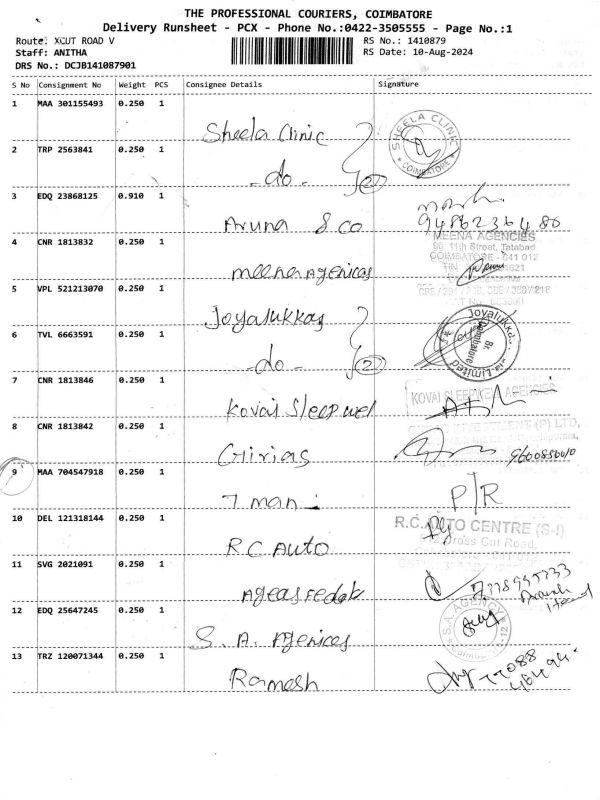 THE PROFESSIONAL COURIERS, COIMBATORE
Delivery Runsheet - PCX - Phone No.:0422-3505555 - Page No.:1
Route: XCUT ROAD V
RS No.: 1410879
Staff: ANITHA
RS Date: 10-Aug-2024
DRS No.: DCJB141087901
S No Consignment No Weight PCS Consignee Details Signature
1 MAA 301155493 0.250 1
Sheela Clinic
SHEELA CLINIC
COIMBATORE
2 TRP 2563841 0.250 1
- do - (2)
3 EDQ 23868125 0.910 1
Aruna & co
9486236480
4 CNR 1813832 0.250 1
MEENA AGENCIES
11th Street, Tatabad
COIMBATORE - 641 012
meena Agenices
5 VPL 521213070 0.250 1
Joyalukkas
6 TVL 6663591 0.250 1
Joyalukkas
Coimbatore
Limited
- do - (2)
7 CNR 1813846 0.250 1
Kovai Sleepwel
KOVAI SLEEPWELL AGENCIES
8 CNR 1813842 0.250 1
(P) LTD,
Girias
9 MAA 704547918 0.250 1
T mani
P/R
10 DEL 121318144 0.250 1
R C Auto
R.C.AUTO CENTRE (S-I)
Cross Cut Road,
11 SVG 2021091 0.250 1
12 EDQ 25647245 0.250 1
S. A. Agenices
S.A. AGENCY
13 TRZ 120071344 0.250 1
Ramesh